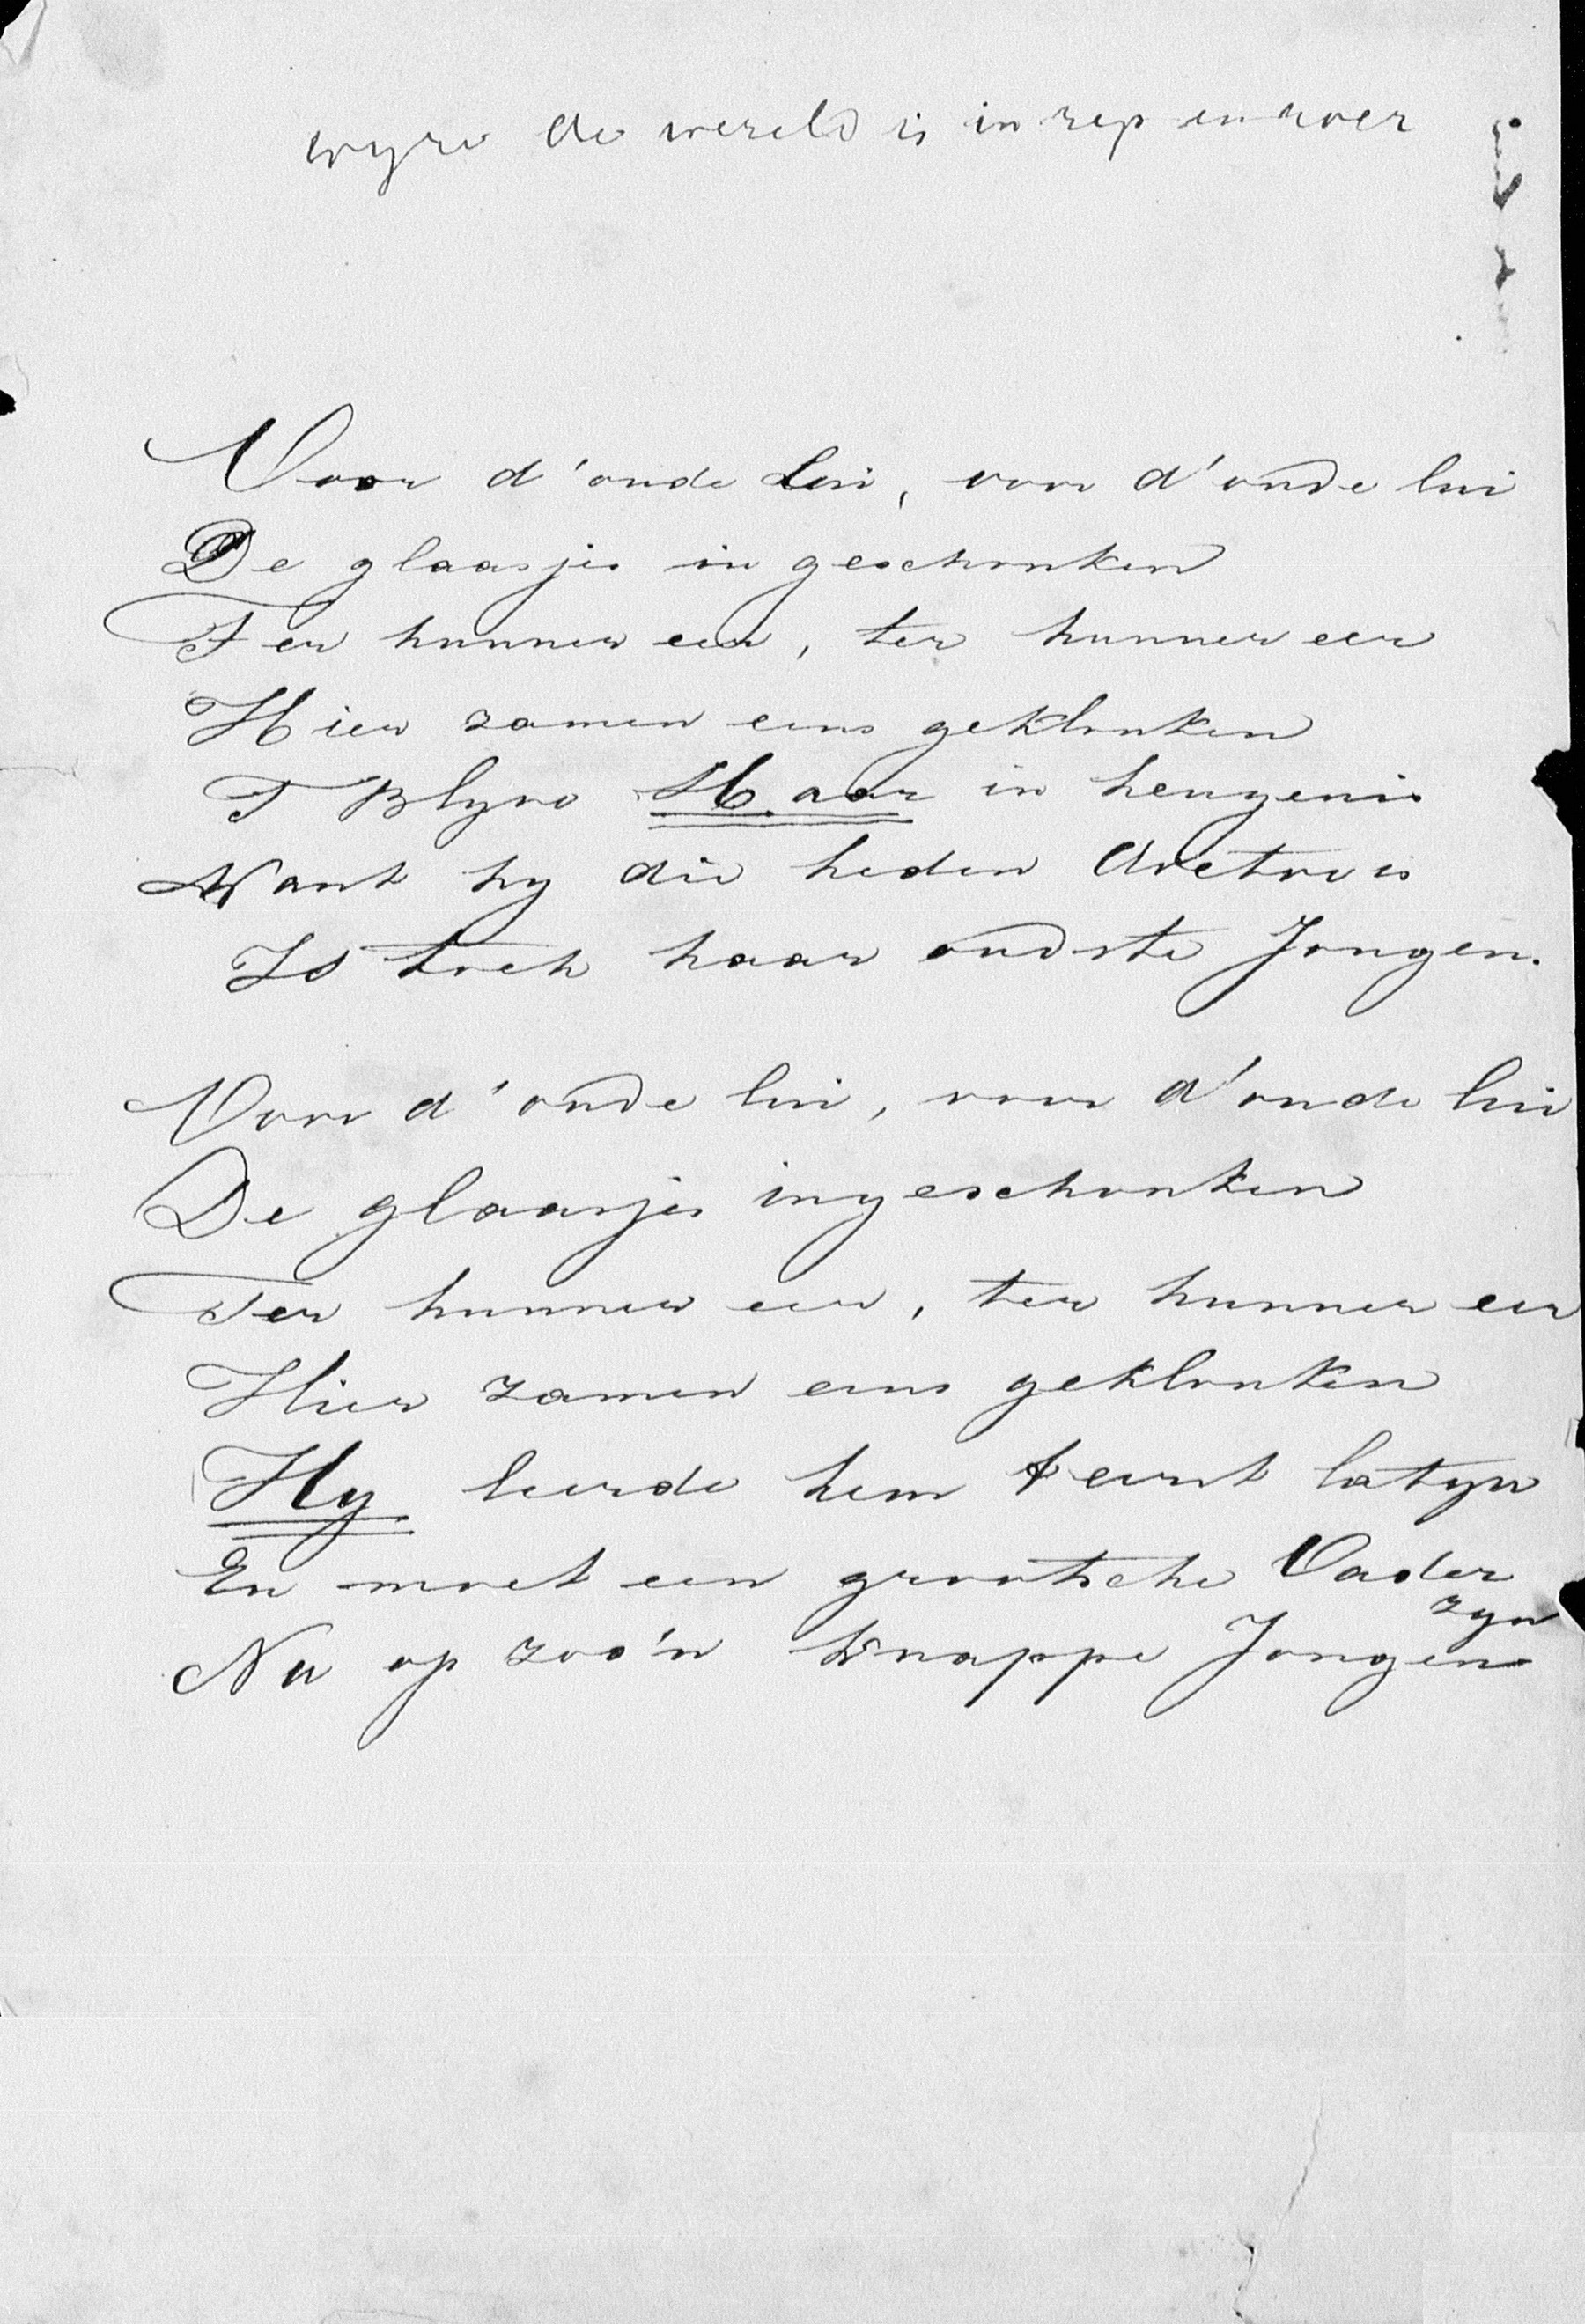 wyze de wereld is in rep en roer
Voor d'oude Lui, voor d'oude lui
De glaasjes in geschonken
Ter hunner eer, ter hunner eer
Hier zamen eens geklonken
T Blyve Haar in heugenis
Want hy die heden doctor is
Is toch haar oudste Jongen.
Voor d'oude lui, voor d'oude lui
De glaasjes ingeschonken
Ter hunner eer, ter hunner eer
Hier zamen eens geklonken
Hy leerde hem t eerst latyn
En moet een grootsche Vader
zyn
Nu op zoo'n knappe Jongen